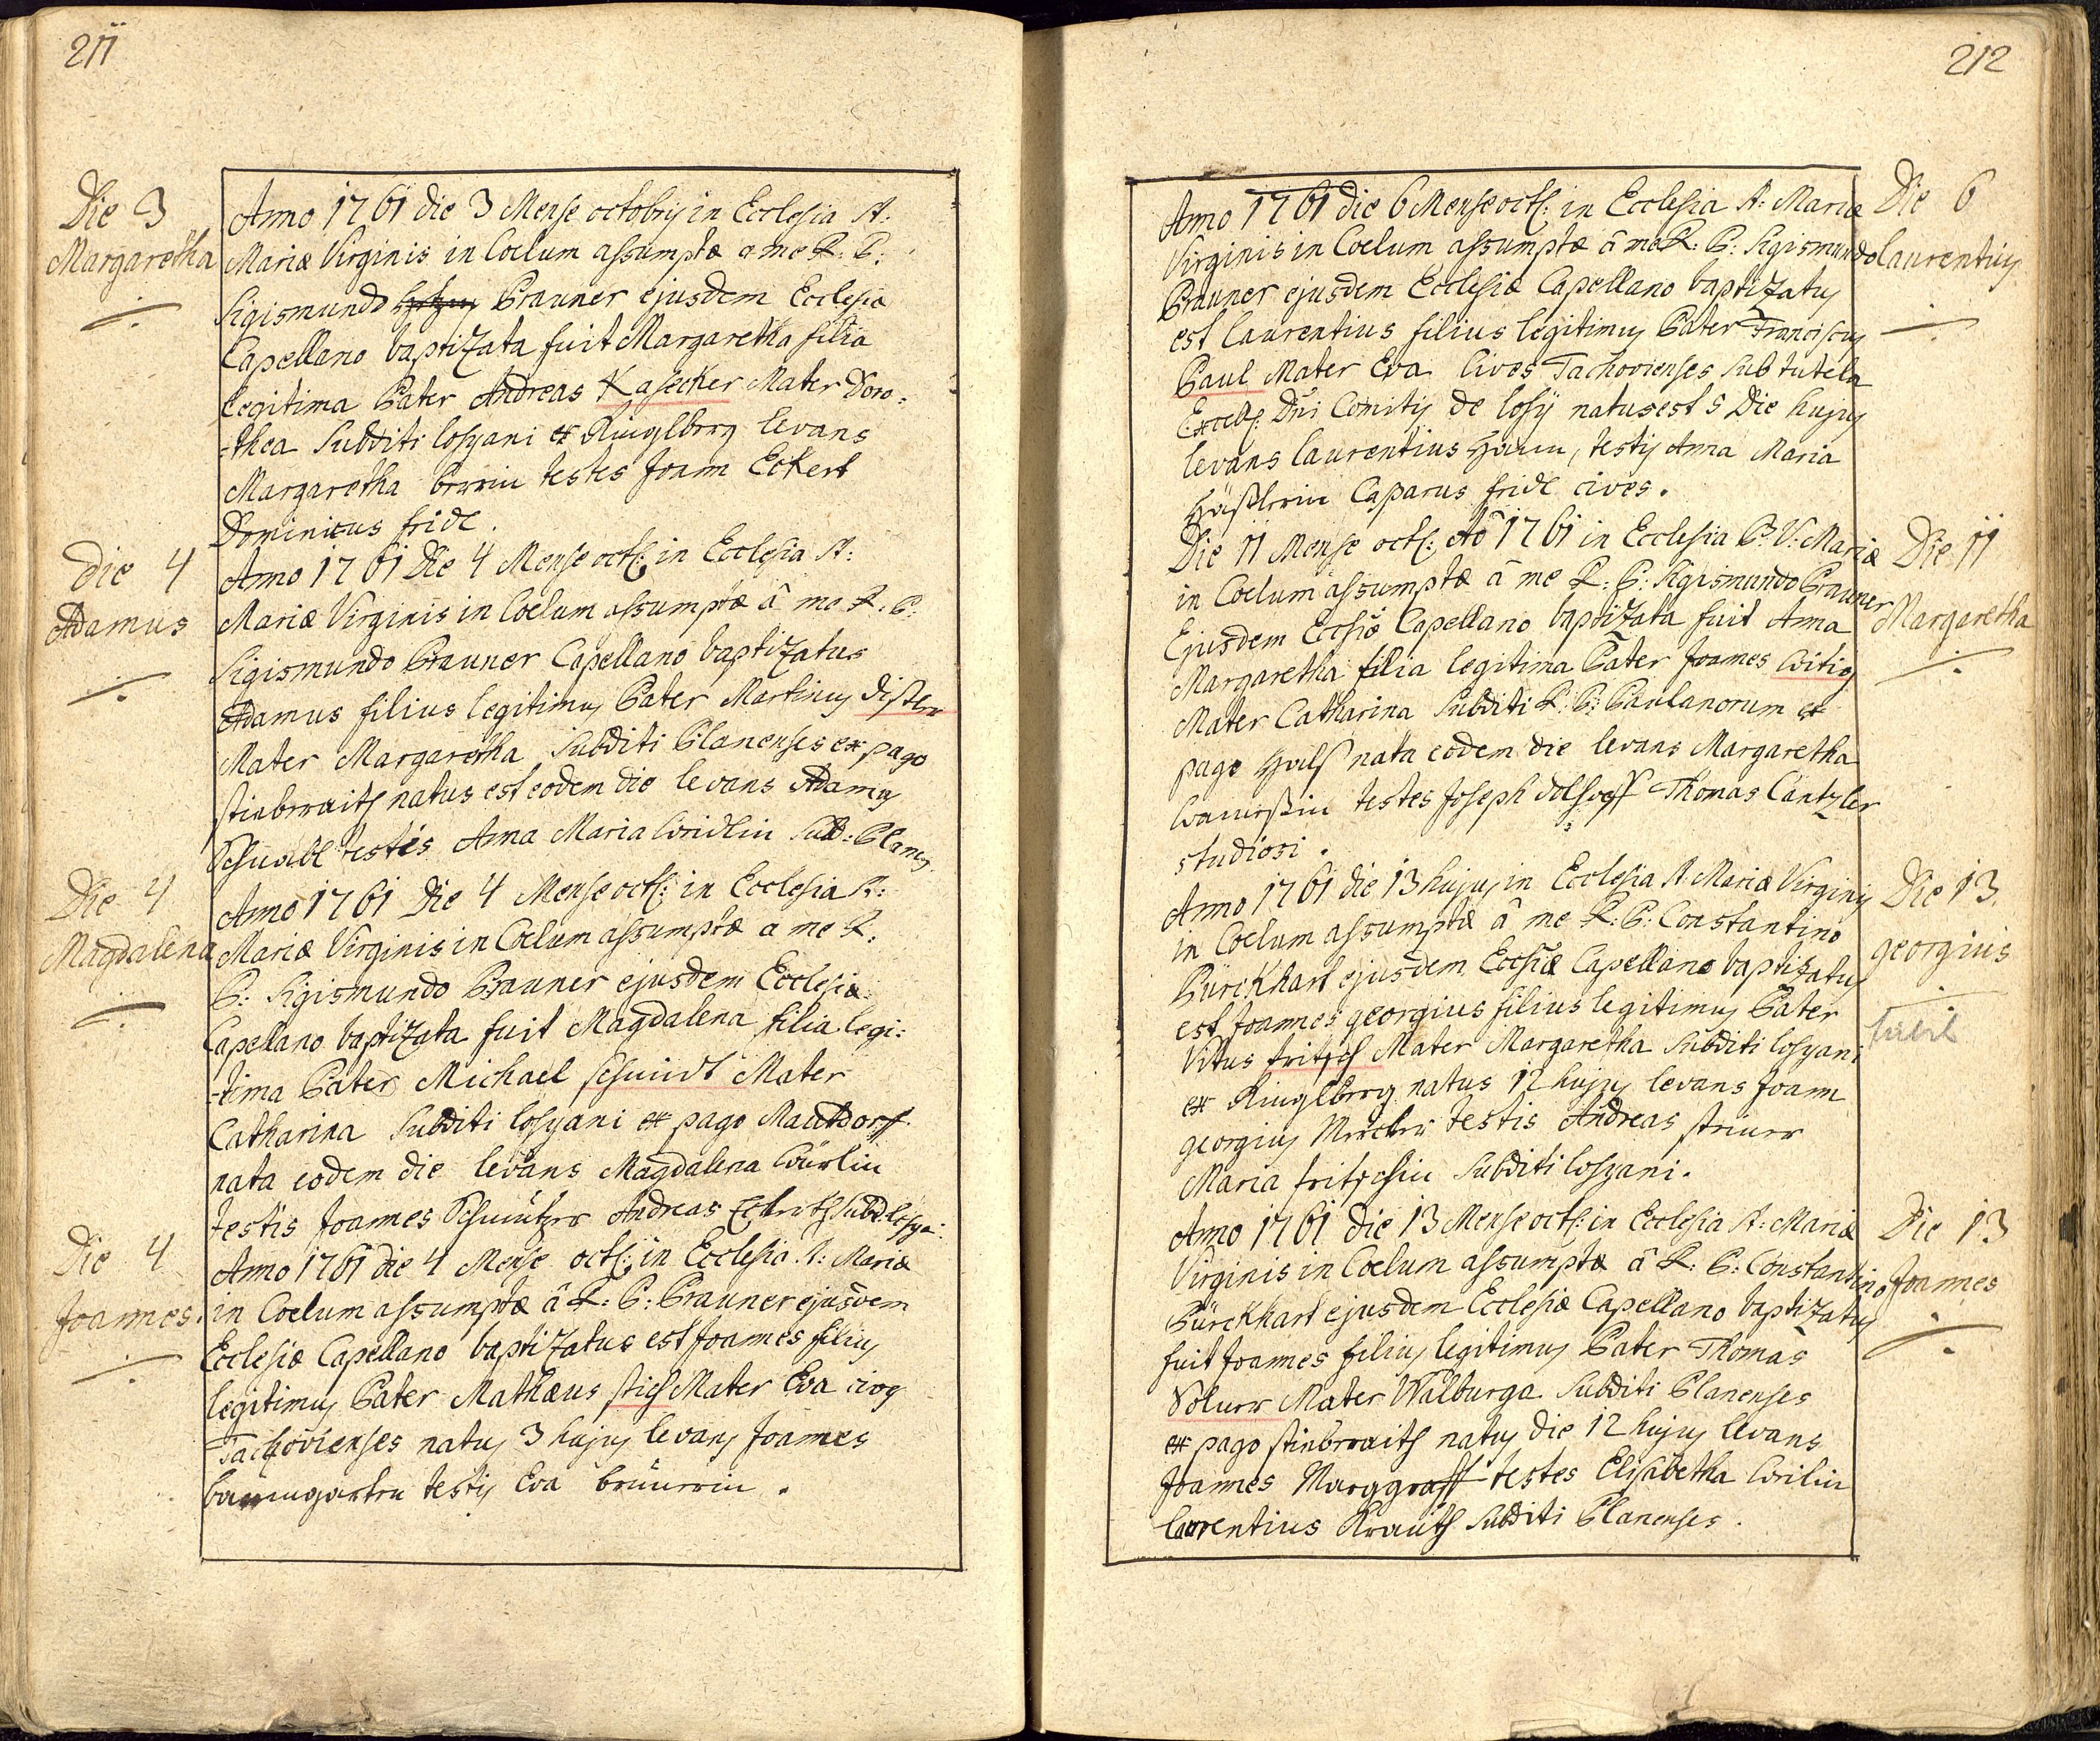 211
Die 3
Margaretha
Anno 1761 die 3 Mense octobris in Ecclesia A:
Mariæ Virginis in Coelum assumptæ a me R: P:
Sigismundo Brauner ejusdem Ecclesiæ
Capellano baptizata fuit Margaretha filia
legitima Pater Andreas Kasecker Mater Doro:
-thea Subditi losyani ex Ringlberg levans
Margaretha testes Joann Eckert
Dominicus fridl.
die 4
Adamus
Anno 1761 Die 4 Mense octb: in Ecclesia A:
Mariæ Virginis in Coelum assumptæ â me R: P:
Sigismundo Brauner Capellano baptizatus
Adamus filius legitimus Pater Martinus distler
Mater Margaretha Subditi Planenses ex pago
natus est eodem die levans Adamus
Schwabl testis Anna Maria Subd: Planes.
Die 4
Magdalena
Anno 1761 Die 4 Mense octb: in Ecclesia A:
Mariæ Virginis in Coelum assumptæ a me R.
P: Sigismundo Brauner ejusdem Ecclesiæ
Capellano baptizata fuit Magdalena filia legi:
-tima Pater Michael schmidt Mater
Catharina Subditi losyani ex pago Mautdorff
nata eodem die levans Magdalena
testis Joannes Andreas Subd: losya:
Die 4
Joannes.
Anno 1761 die 4 Mense octb: in Ecclesia A: Mariæ
in Coelum assumptæ â R: P: Brauner ejusdem
Ecclesiæ Capellano baptizatus est Joannes filius
legitimus Pater Mathæus stich Mater Eva cives
Tachovienses natus 3 hujus levans Joannes
baumgarten testis Eva
212
Die 6
laurentius
Anno 1761 die 6 Mense octb: in Ecclesia A: Mariæ
Virginis in Coelum assumptæ â me R: P: Sigismundo
Brauner ejusdem Ecclesiæ Capellano baptizatus
est laurentius filius legitimus Pater Franciscus
Paul Mater Eva Cives Tachovienses sub tutela
Excells: Dni Comitis de losy natus est 5 Die hujus
levans laurentius testis Anna Maria
Casparus fridl cives.
Die 11
Margaretha
Die 11 Mense octb: Aô 1761 in Ecclesia B: V: Mariæ
in Coelum assumptæ â me R: P: Sigismundo Brauner
Ejusdem Ecclsiæ Capellano baptizata fuit Anna
Margaretha filia legitima Pater Joannes
Mater Catharina Subditi R: P: Paulanorum ex
pago Hals nata eodem die levans Margaretha
testes Joseph Thomas Cantzler
studiosi.
Die 13.
georgius
Anno 1761 die 13 hujus in Ecclesia A: Mariæ Virginis
in Coelum assumptæ â me R: P: Constantino
Bürckhart ejusdem Ecclsiæ Capellano baptizatus
est Joannes georgius filius legitimus Pater
Vitus fritsch Mater Margaretha Subditi losyani
ex Ringlberg natus 12 hujus levans Joann
georgius testis Andreas
Maria fritschin Subditi losyani.
Die 13
Joannes
Anno 1761 die 13 Mense octb: in Ecclesia A: Mariæ
Virginis in Coelum assumptæ â R: P: Constantino
Bürckhart ejusdem Ecclesiæ Capellano baptizatus
fuit Joannes filius legitimus Pater Thomas
Mater Walburga Subditi Planenses
ex pago natus die 12 hujus levans
Joannes Marggraff testes Elisabetha
laurentius Subditi Planenses.